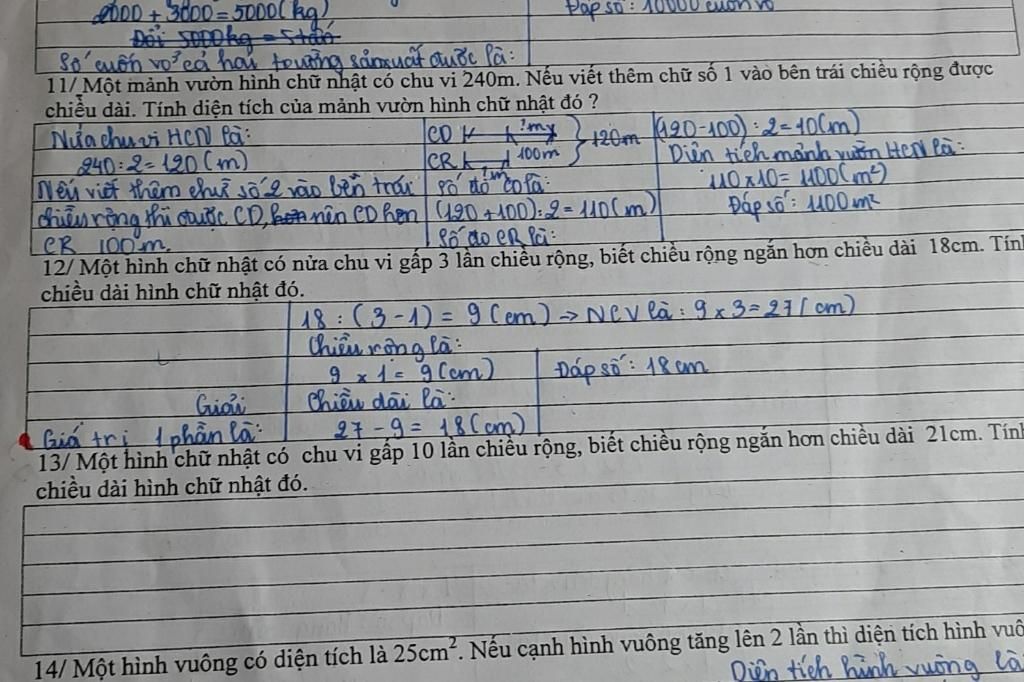 2000 + 3000 = 5000 (kg)
Đáp số : 10000 cuốn vở
Đổi 5000kg = 5 tấn
Số cuốn vở cả hai trường sản xuất được là :
11/ Một mảnh vườn hình chữ nhật có chu vi 240m. Nếu viết thêm chữ số 1 vào bên trái chiều rộng được
chiều dài. Tính diện tích của mảnh vườn hình chữ nhật đó ?
Nửa chu vi HCN là:
240 : 2 = 120 (m)
Nếu viết thêm chữ số 2 vào bên trái
chiều rộng thì được CD, hơn nên CD hơn
CR 100m.
CD ?m
CR 100m
?m
120m
Số đo CD là :
(120 + 100) : 2 = 110 (m)
Số đo CR là :
(120 - 100) : 2 = 10 (m)
Diện tích mảnh vườn HCN là :
110 x 10 = 1100 (m²)
Đáp số : 1100 m²
12/ Một hình chữ nhật có nửa chu vi gấp 3 lần chiều rộng, biết chiều rộng ngắn hơn chiều dài 18cm. Tính
chiều dài hình chữ nhật đó.
Giải
Giá trị 1 phần là :
18 : (3 - 1) = 9 (cm) → NCV là : 9 x 3 = 27 (cm)
Chiều rộng là :
9 x 1 = 9 (cm)
Chiều dài là :
27 - 9 = 18 (cm)
Đáp số : 18 cm
13/ Một hình chữ nhật có chu vi gấp 10 lần chiều rộng, biết chiều rộng ngắn hơn chiều dài 21cm. Tính
chiều dài hình chữ nhật đó.
14/ Một hình vuông có diện tích là 25cm². Nếu cạnh hình vuông tăng lên 2 lần thì diện tích hình vuô
Diện tích hình vuông là